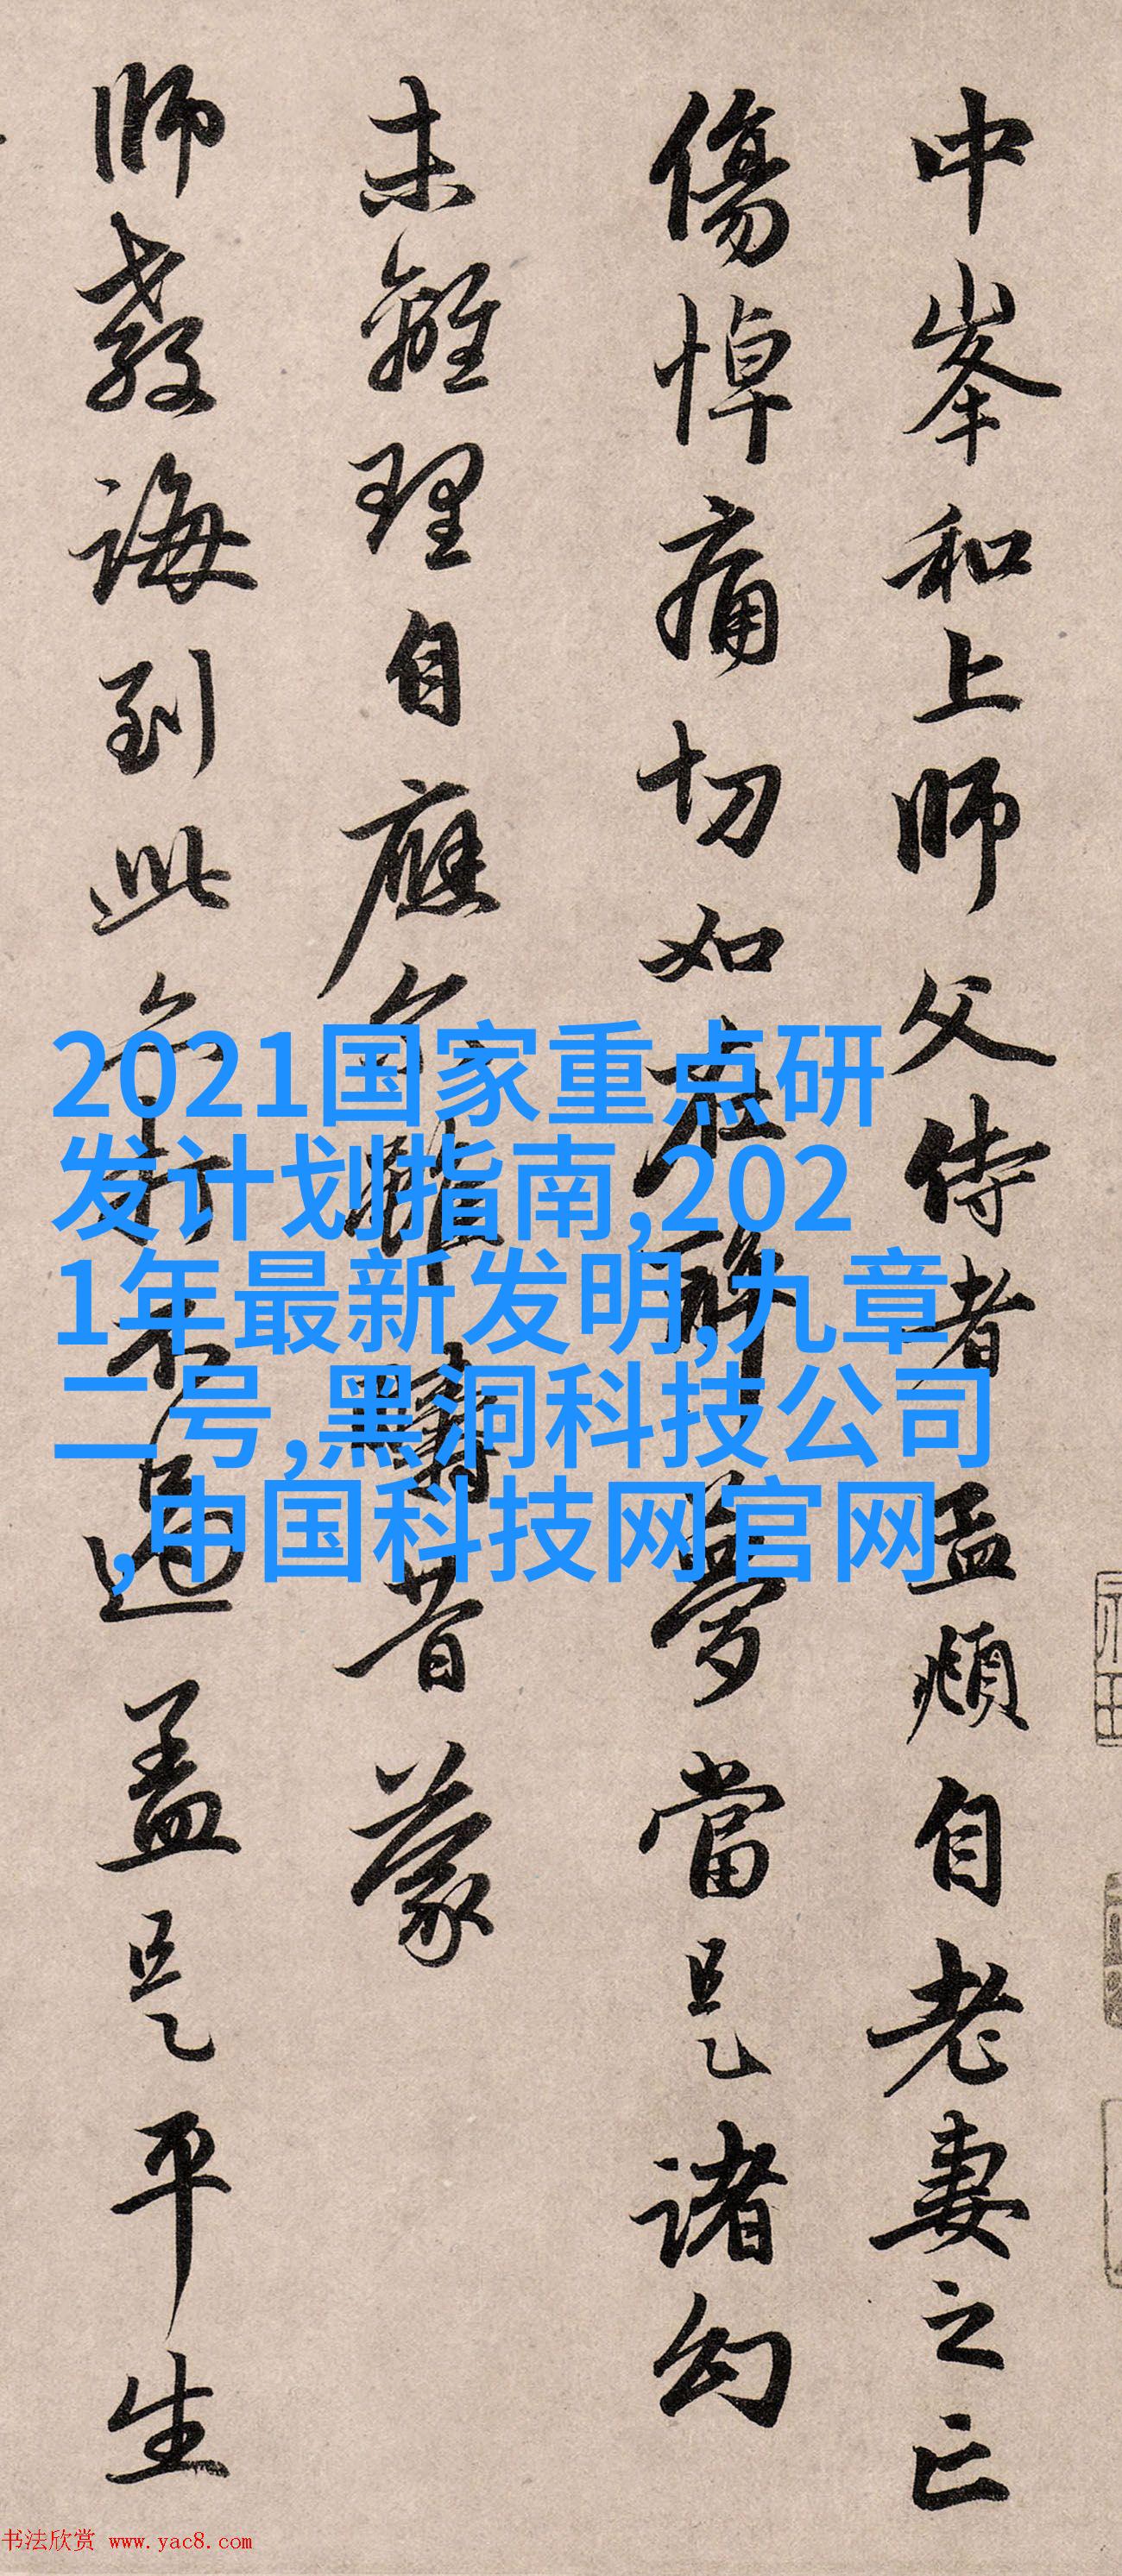 中峯和上師父侍者孟頫自老妻之亡
傷悼痛切如在醉夢當是諸幻
未離理自應尔雖畴昔蒙
師教誨到此亦打不過盖是平生
2021国家重点研
发计划指南,202
1年最新发明,九章
二号,黑洞科技公司
,中国科技网官网
书法欣赏 www.yac8.com